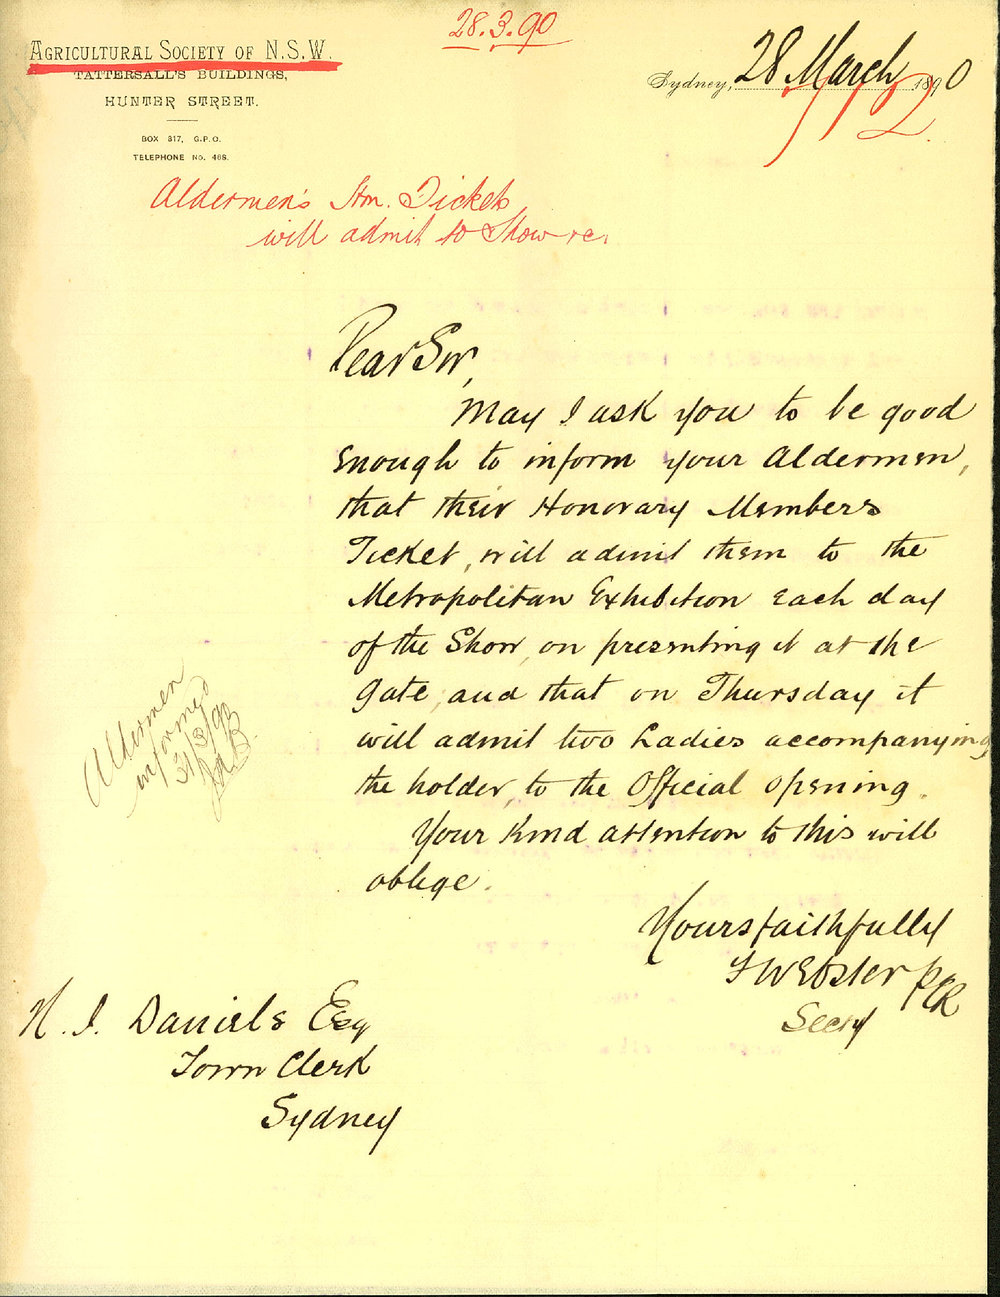 28.3.90
AGRICULTURAL SOCIETY OF N.S.W
TATTERSALL'S BUILDINGS,
HUNTER STREET.
BOX 317, G.P.O.
TELEPHONE No. 468.
Sydney, 28 March 1890
772
Aldermen's Hon. Tickets
will admit to Show &c.
Dear Sir,
May I ask you to be good
enough to inform your Aldermen,
that their Honorary Members
Ticket, will admit them to the
Metropolitan Exhibition each day
of the Show, on presenting it at the
Gate, and that on Thursday it
will admit two Ladies accompanying
the holder, to the Official opening.
Your kind attention to this will
oblige.
Aldermen
informed
31/3/90
Yours faithfully
F Webster
Secry
H. J. Daniels Esq
Town Clerk
Sydney